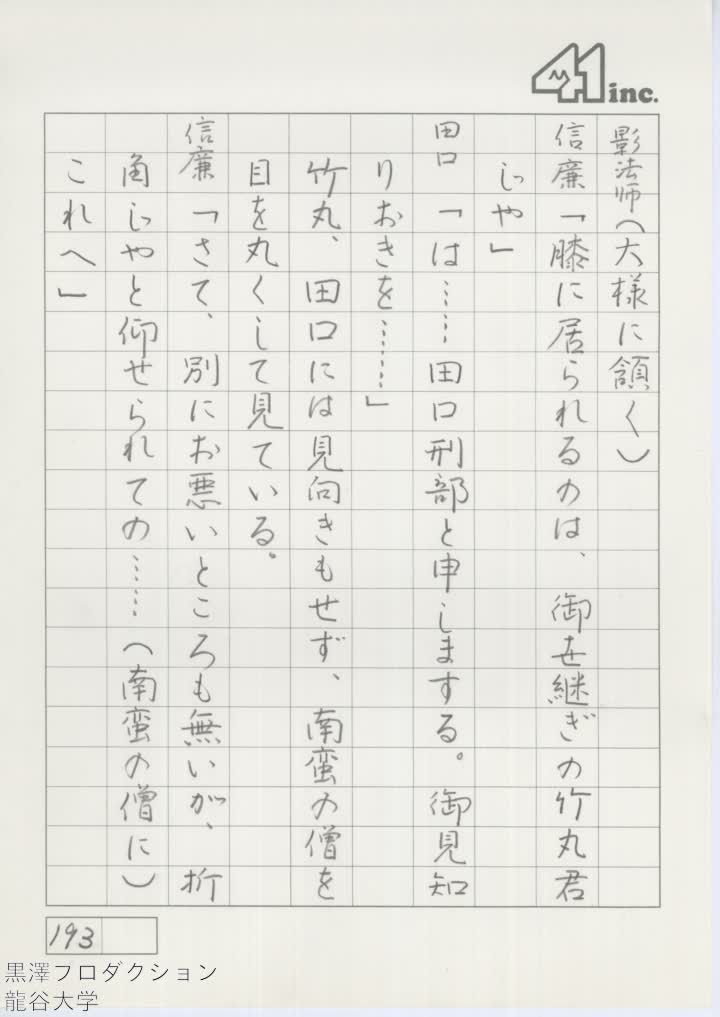 41 inc.
影法師(大様に頷く)
信廉「膝に居られるのは、御世継ぎの竹丸君
じゃ」
田口「は……田口刑部と申しまする。御見知
りおきを……」
竹丸、田口には見向きもせず、南蛮の僧を
目を丸くして見ている。
信廉「さて、別にお悪いところも無いが、折
角じゃと仰せられての……(南蛮の僧に)
これへ」
193
黒澤フロダクション
龍谷大学